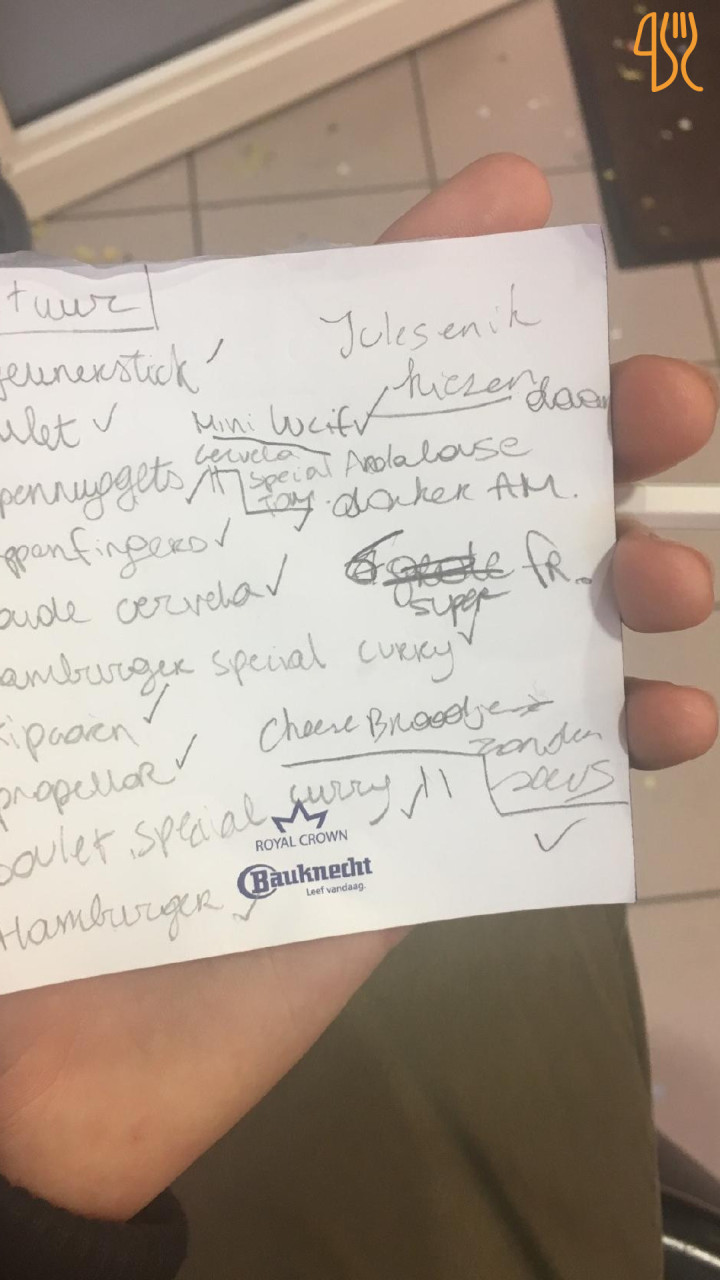 tuur
Jules en ik
kiezen daar
eunerstick
ulet
Mini Lucif
Cervela
pennuggets
Special Andalouse
Tom. donker AM.
ppenfingers
grote FR.
super
oude cervela
amburger special curry
ipcorn
Cheese Broodje
zonder
saus
propellor
oulet special curry 11
ROYAL CROWN
Bauknecht
Leef vandaag.
Hamburger